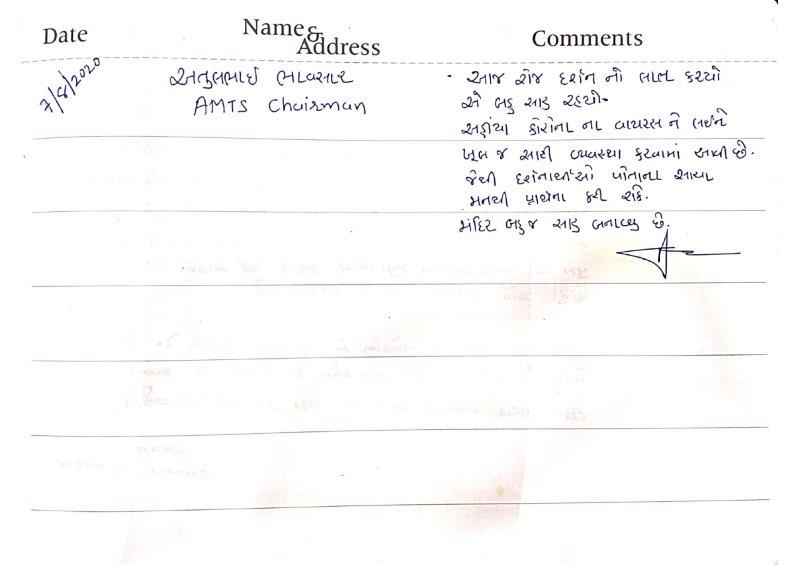 Date
Name & Address
Comments
7/8/2020
અતુલભાઈ ભાવસાર
AMTS Chairman
આજ રોજ દર્શન નો લાભ કરયો
એ બહુ સારૂ રહયો.
અહીંયા કોરોના ના વાયરસ ને લઈને
ખૂબ જ સારી વ્યવસ્થા કરવામાં આવી છે.
જેથી દર્શનાર્થીઓ પોતાના સાચા
મનથી પ્રાર્થના કરી શકે.
મંદિર બહુ જ સારૂ બનાવ્યુ છે.